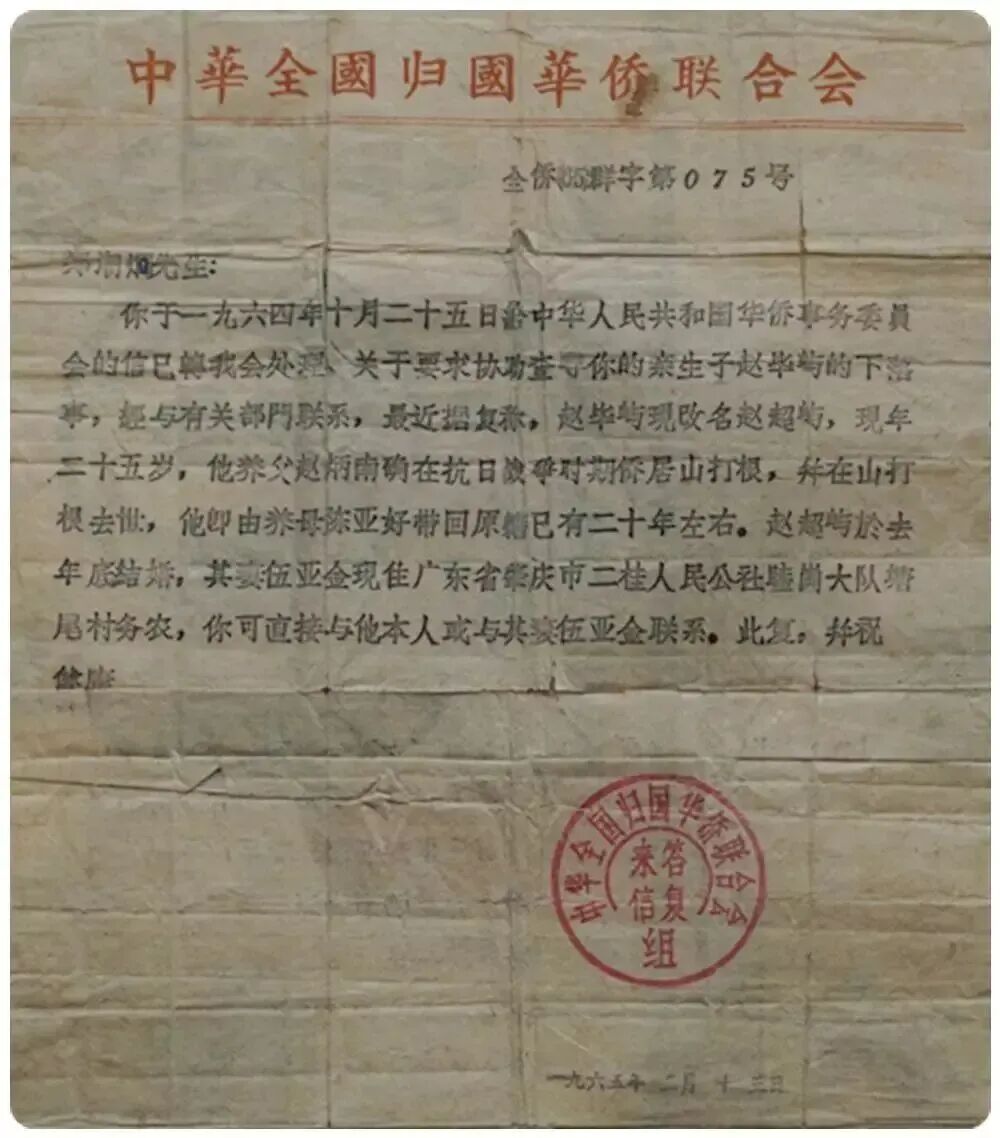 中華全國归國華侨联合会
全侨(65)群字第075号
先生:
你于一九六四年十月二十五日給中华人民共和国华侨事务委員
会的信已轉我会处理、关于要求协助查寻你的亲生子赵华屿的下落
事,經与有关部門联系,最近据复称,赵华屿現改名赵超屿,現年
二十五岁,他养父赵炳南确在抗日战爭时期侨居山打根,幷在山打
根去世,他即由养母陈亚好带回原籍已有二十年左右。赵超屿於去
年底结婚,其妻伍亚金現住广东省肇庆市二桂人民公社 崗大队塘
尾村务农,你可直接与他本人或与其妻伍亚金联系。此复,幷祝
健康
中华全国归国华侨联合会
来信答复
组
一九六五年 二月 十三日